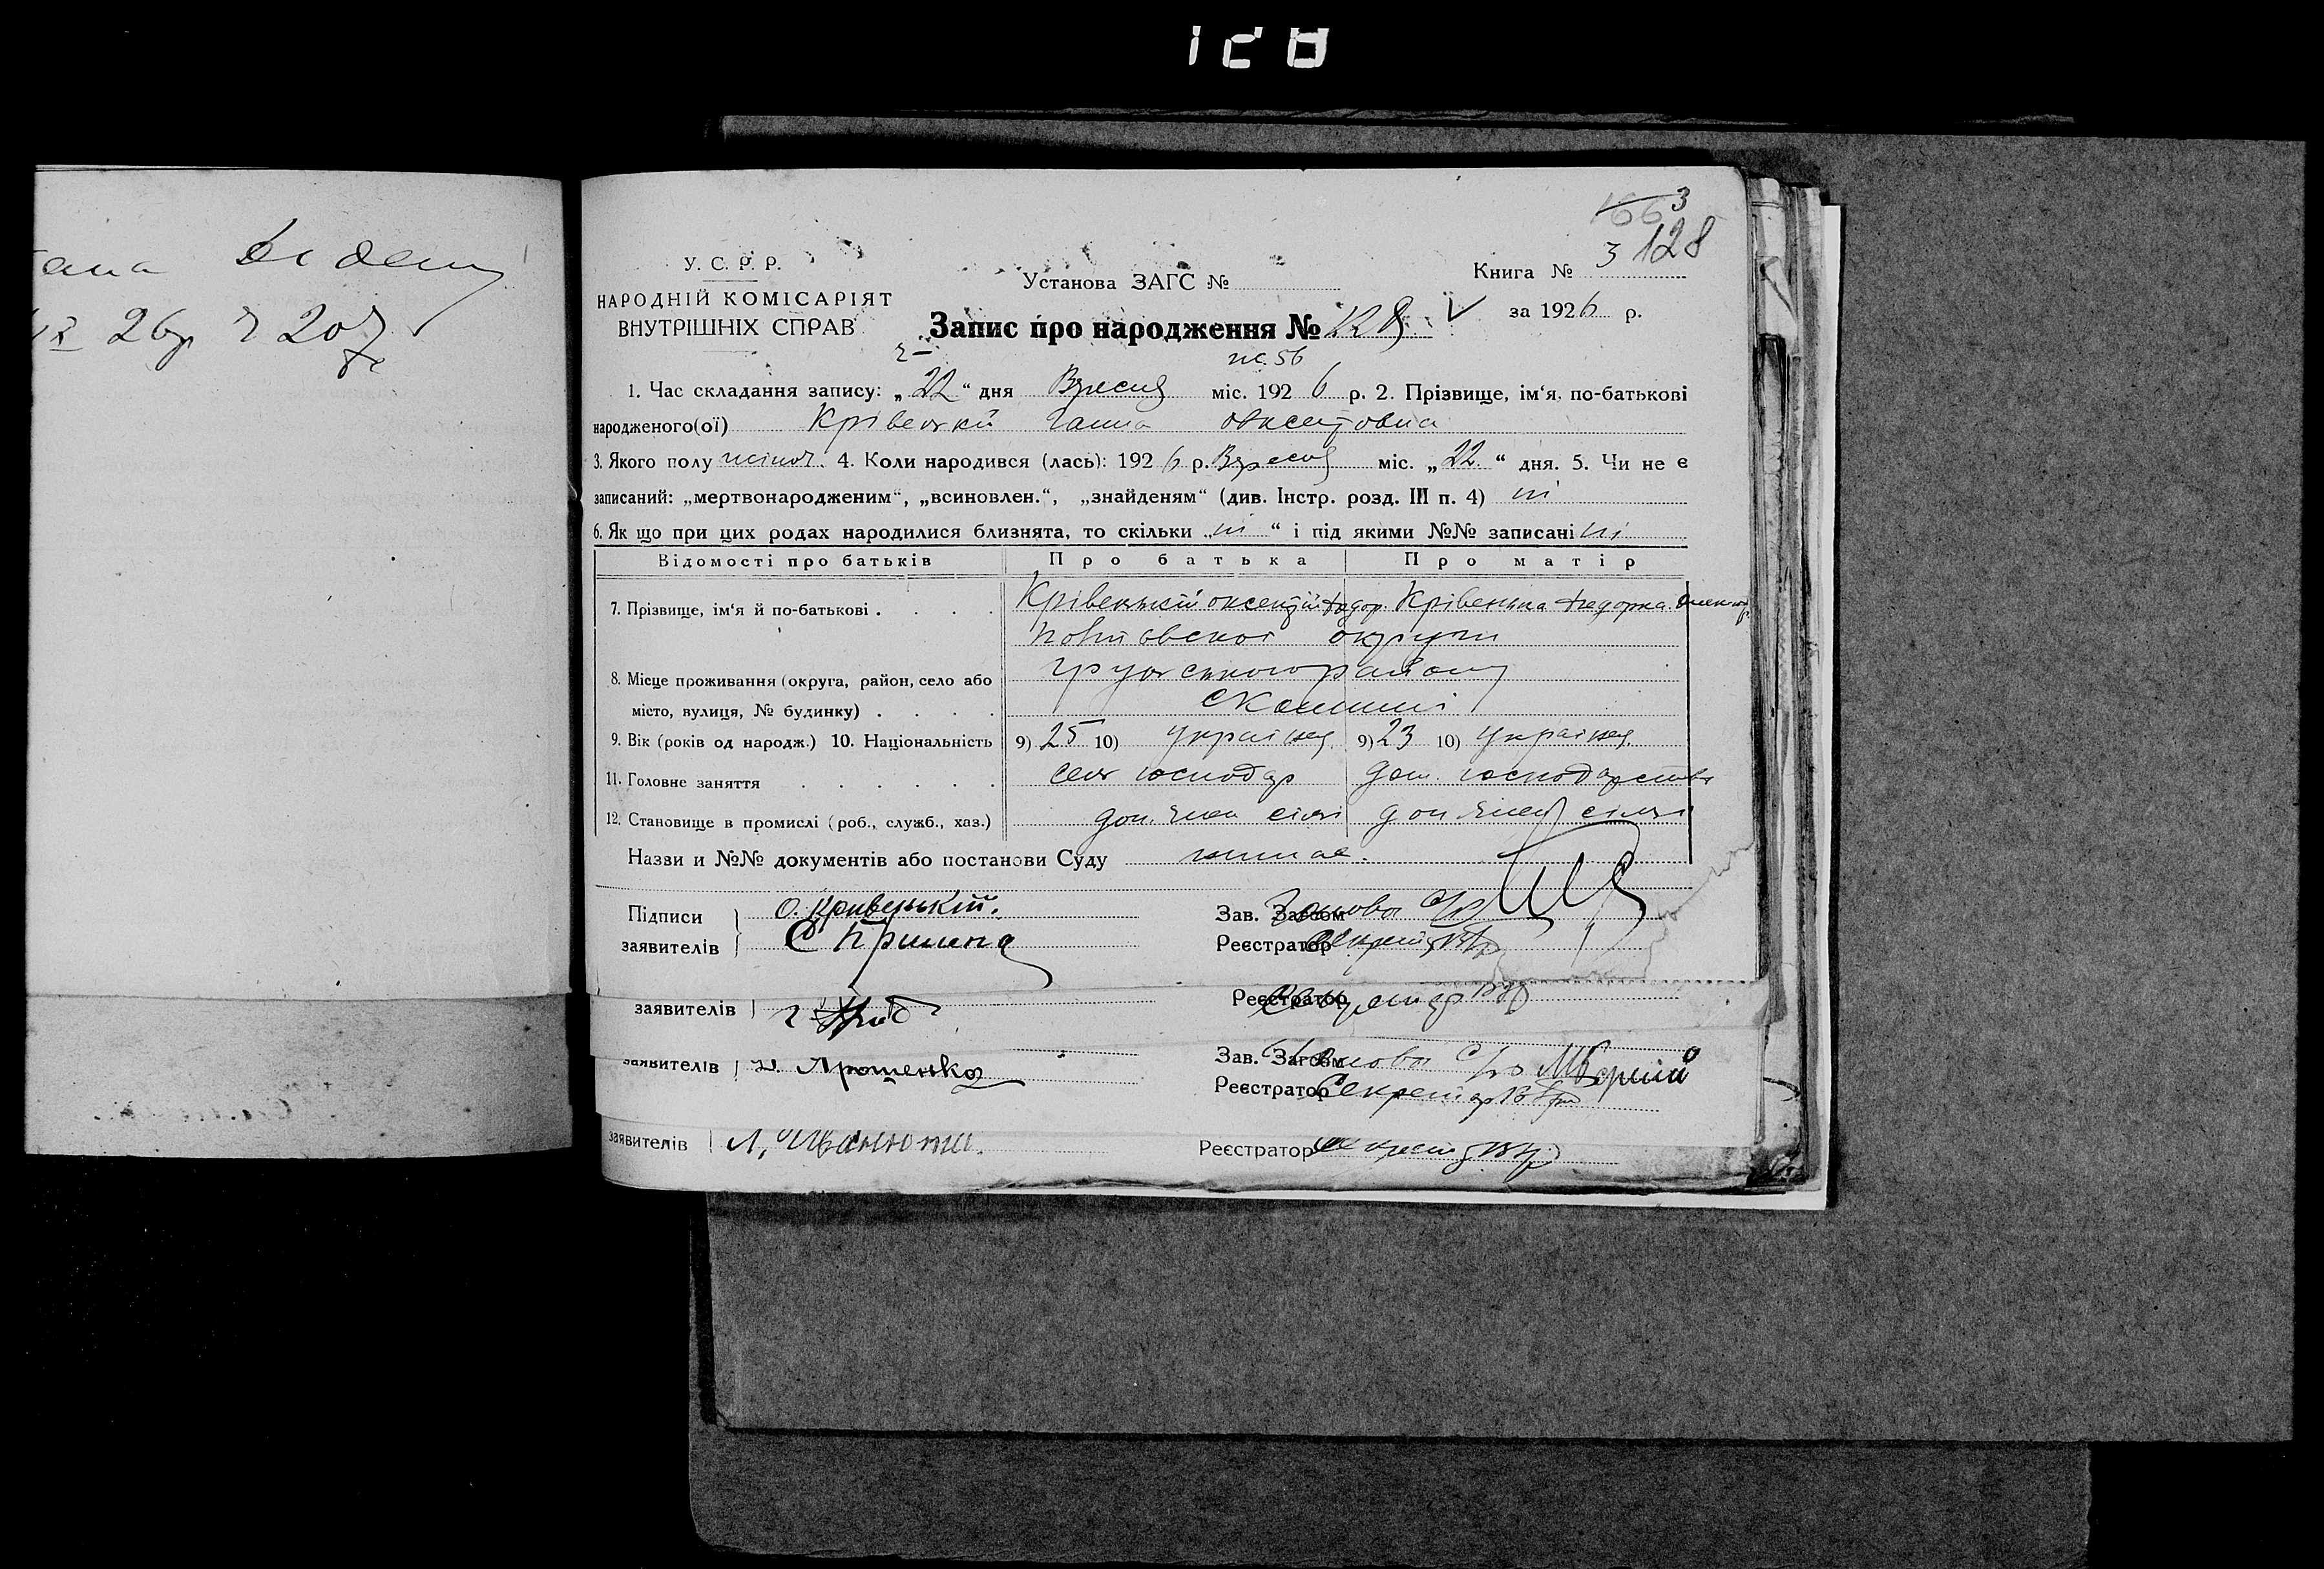 128
1663
У. С. Р. Р.
НАРОДНІЙ КОМІСАРІЯТ
ВНУТРІШНІХ СПРАВ
Установа ЗАГС №
Книга № 3 128
за 1926 р.
Запис про народження № 128 V
ж. 56
1. Час складання запису: „22“ дня Вересня міс. 1926 р. 2. Прізвище, ім‘я, по-батькові
народженого(ої) Крівенкий Ганна Оксентовна
3. Якого полу жіноч. 4. Коли народився (лась): 1926 р. Вересня міс. „22“ дня. 5. Чи не є
записаний: „мертвонародженим“, „всиновлен.“, „знайденям“ (див. Інстр. розд. III п. 4) ні
6. Як що при цих родах народилися близнята, то скільки „ні“ і під якими №№ записані ні
Відомості про батьків Про батька Про матір
7. Прізвище, ім‘я й по-батькові . . . . Крівенький Оксентій Крівенька
Полтавскоі округи
8. Місце проживання (округа, район, село або району
місто, вулиця, № будинку) . . . .
9. Вік (років од народж.) 10. Національність 9) 25 10) Украінец 9) 23 10) Украінец
11. Головне заняття . . . . . . сель господар дом. господарство
12. Становище в промислі (роб., служб., хаз.) доп. член сімї доп член сімї
Назви и №№ документів або постанови Суду немае.
Підписи О. Кривенький. Зав. Загсом Голова С/р
заявителів Реєстратор Секретар
заявителів Реєстратор Секретар
заявителів Ярошенко Зав. Загсом Голова С/р
Реєстратор Секретар
заявителів Л. Иванюта. Реєстратор Секретар